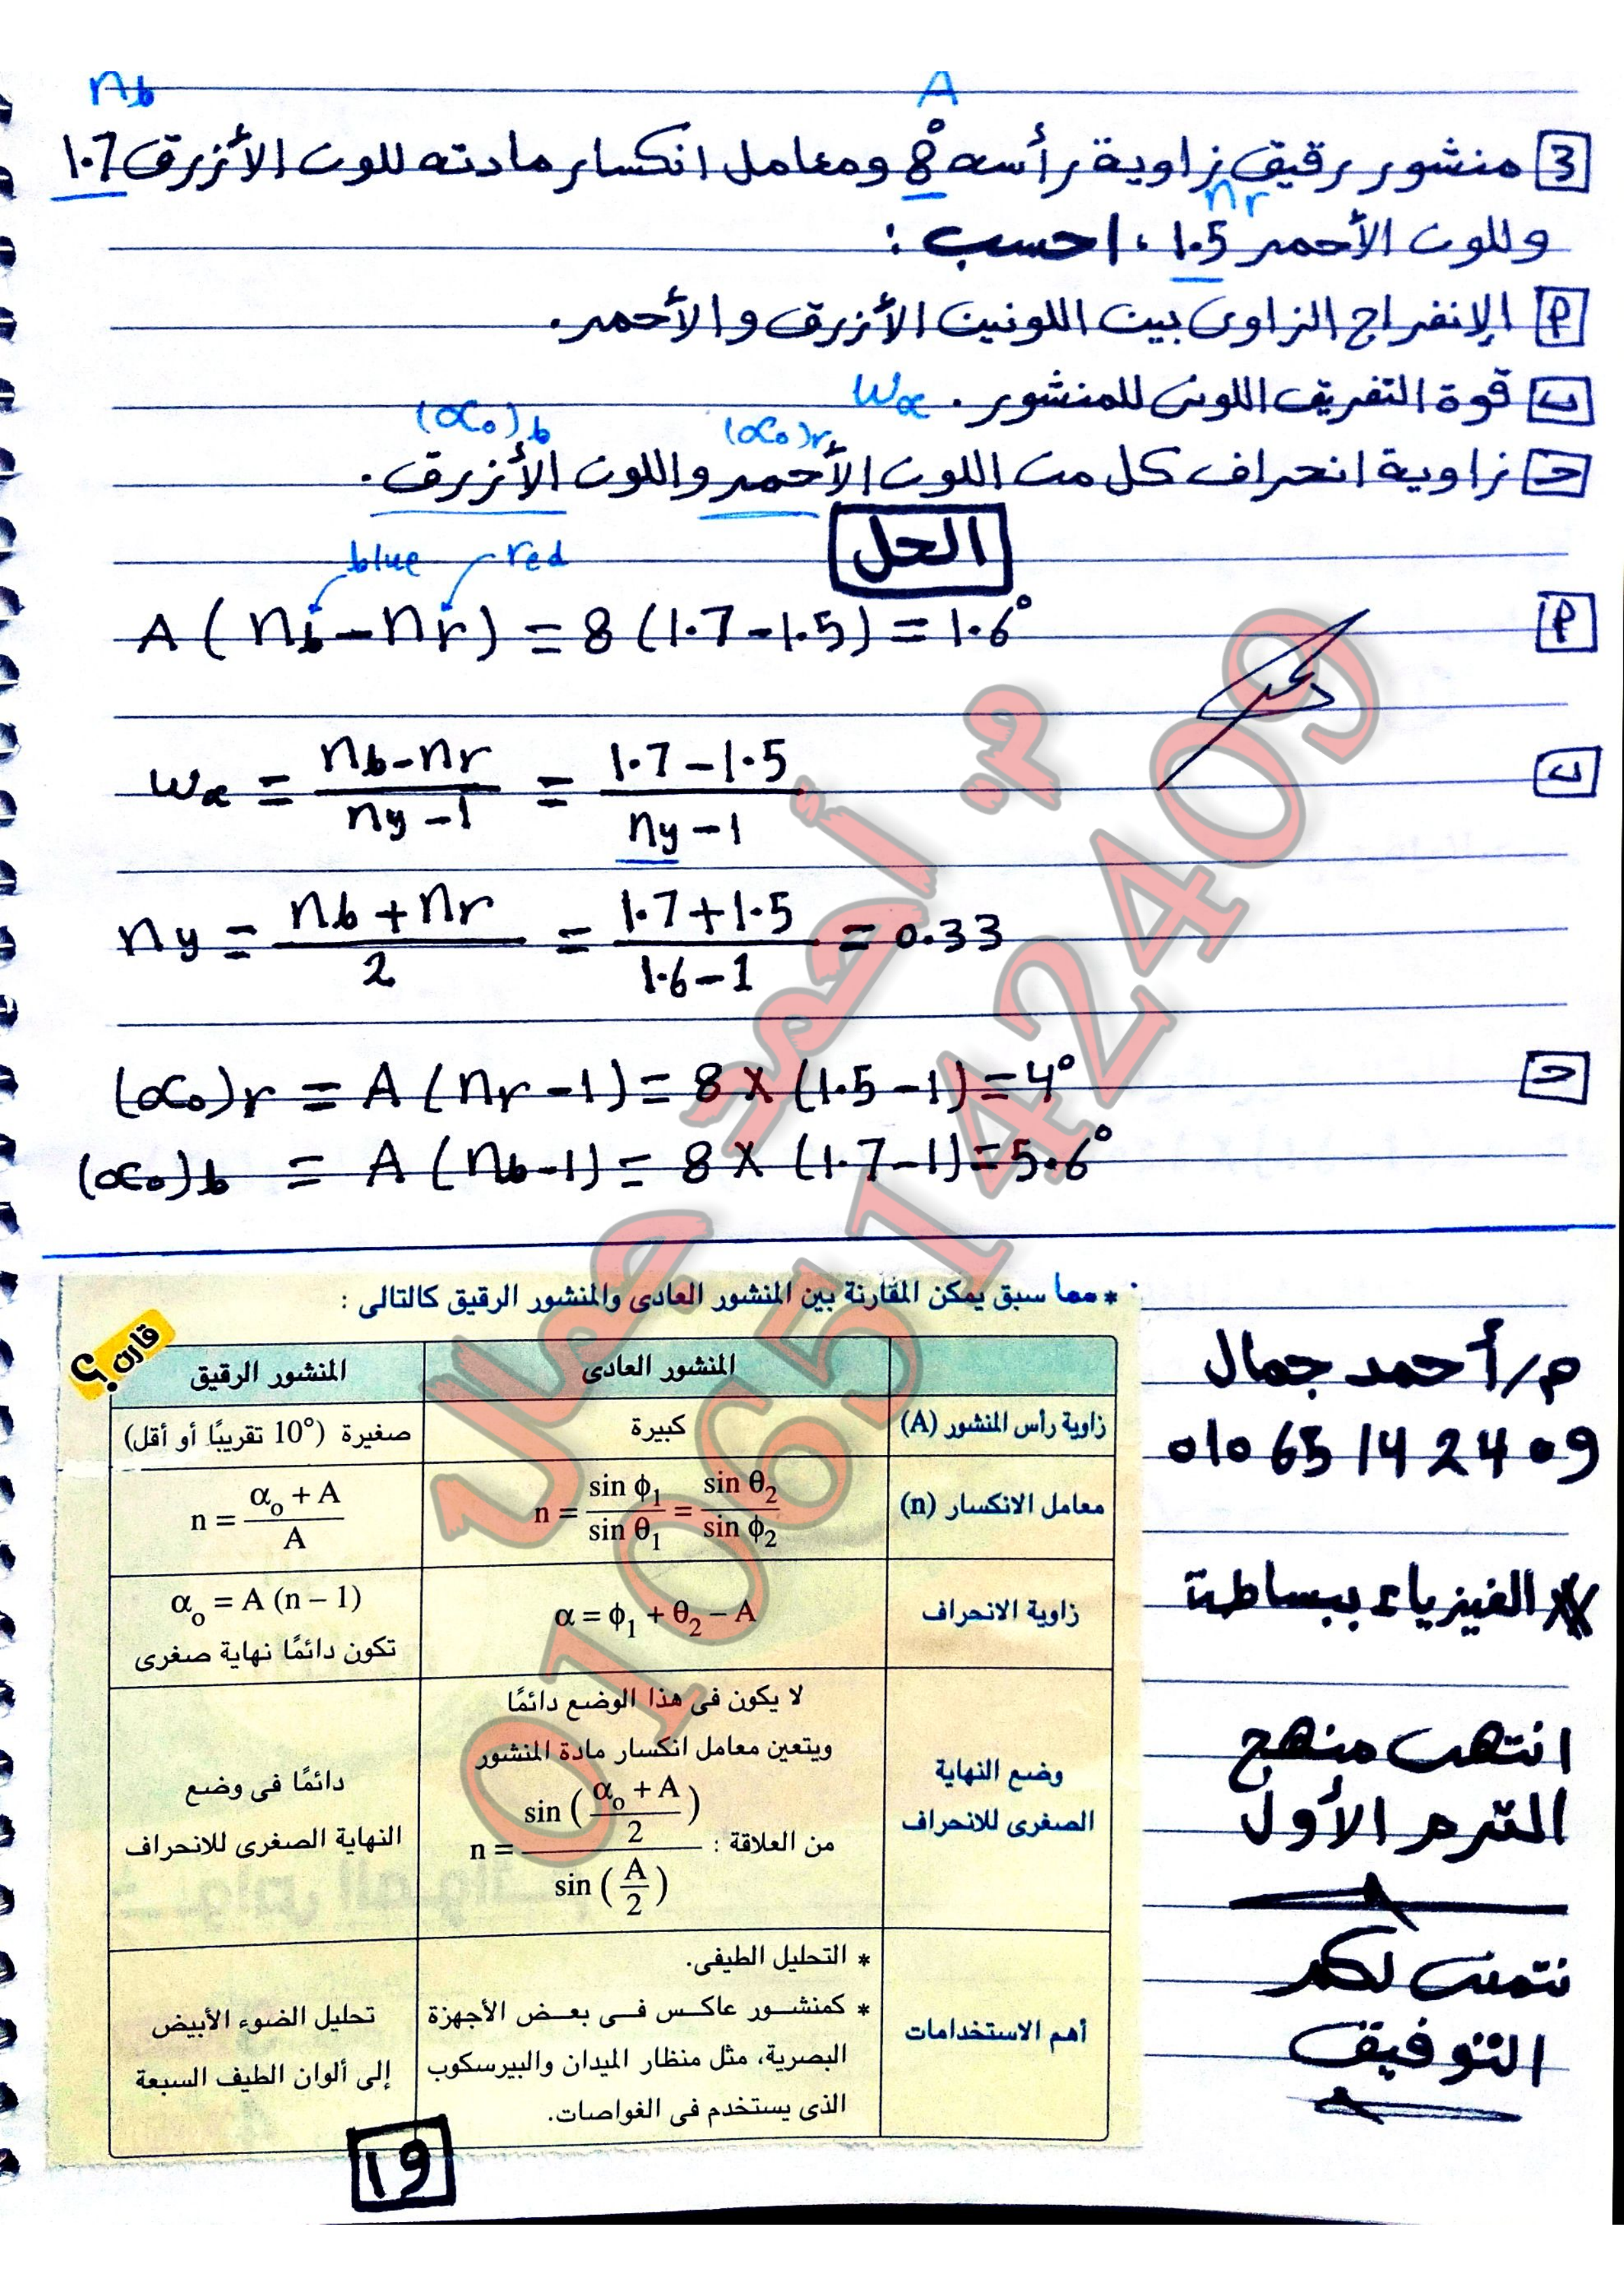 nb A
3 منشور رقيق زاوية رأسه 8° ومعامل انكسار مادته للون الأزرق 1.7
nr
وللون الأحمر 1.5 ، احسب :
أ الإنفراج الزاوى بين اللونين الأزرق والأحمر.
ب قوة التفريق اللونى للمنشور . ωα
(αo)r (αo)b
حـ زاوية انحراف كل من اللون الأحمر واللون الأزرق .
الحل
blue red
أ A ( nb - nr ) = 8 ( 1.7 - 1.5 ) = 1.6°
ب ωα = (nb - nr)/(ny - 1) = (1.7 - 1.5)/(ny - 1)
ny = (nb + nr)/2 = (1.7 + 1.5)/(1.6 - 1) = 0.33
حـ (αo)r = A ( nr - 1 ) = 8 × (1.5 - 1) = 4°
(αo)b = A ( nb - 1 ) = 8 × (1.7 - 1) = 5.6°
* مما سبق يمكن المقارنة بين المنشور العادى والمنشور الرقيق كالتالى :
قارن ؟
المنشور العادى المنشور الرقيق
زاوية رأس المنشور (A) كبيرة صغيرة (10° تقريبًا أو أقل)
معامل الانكسار (n) n = sin ϕ1 / sin θ1 = sin θ2 / sin ϕ2 n = (αo + A)/A
زاوية الانحراف α = ϕ1 + θ2 – A αo = A (n – 1)
تكون دائمًا نهاية صغرى
وضع النهاية
الصغرى للانحراف
لا يكون فى هذا الوضع دائمًا
ويتعين معامل انكسار مادة المنشور
من العلاقة : n = sin ((αo + A)/2) / sin (A/2)
دائمًا فى وضع
النهاية الصغرى للانحراف
أهم الاستخدامات
* التحليل الطيفى.
* كمنشور عاكس فى بعض الأجهزة
البصرية، مثل منظار الميدان والبيرسكوب
الذى يستخدم فى الغواصات.
تحليل الضوء الأبيض
إلى ألوان الطيف السبعة
م/أحمد جمال
01065142409
الفيزياء ببساطة
انتهى منهج
الترم الأول
نتمنى لكم
التوفيق
١٩
م. أحمد جمال
01065142409